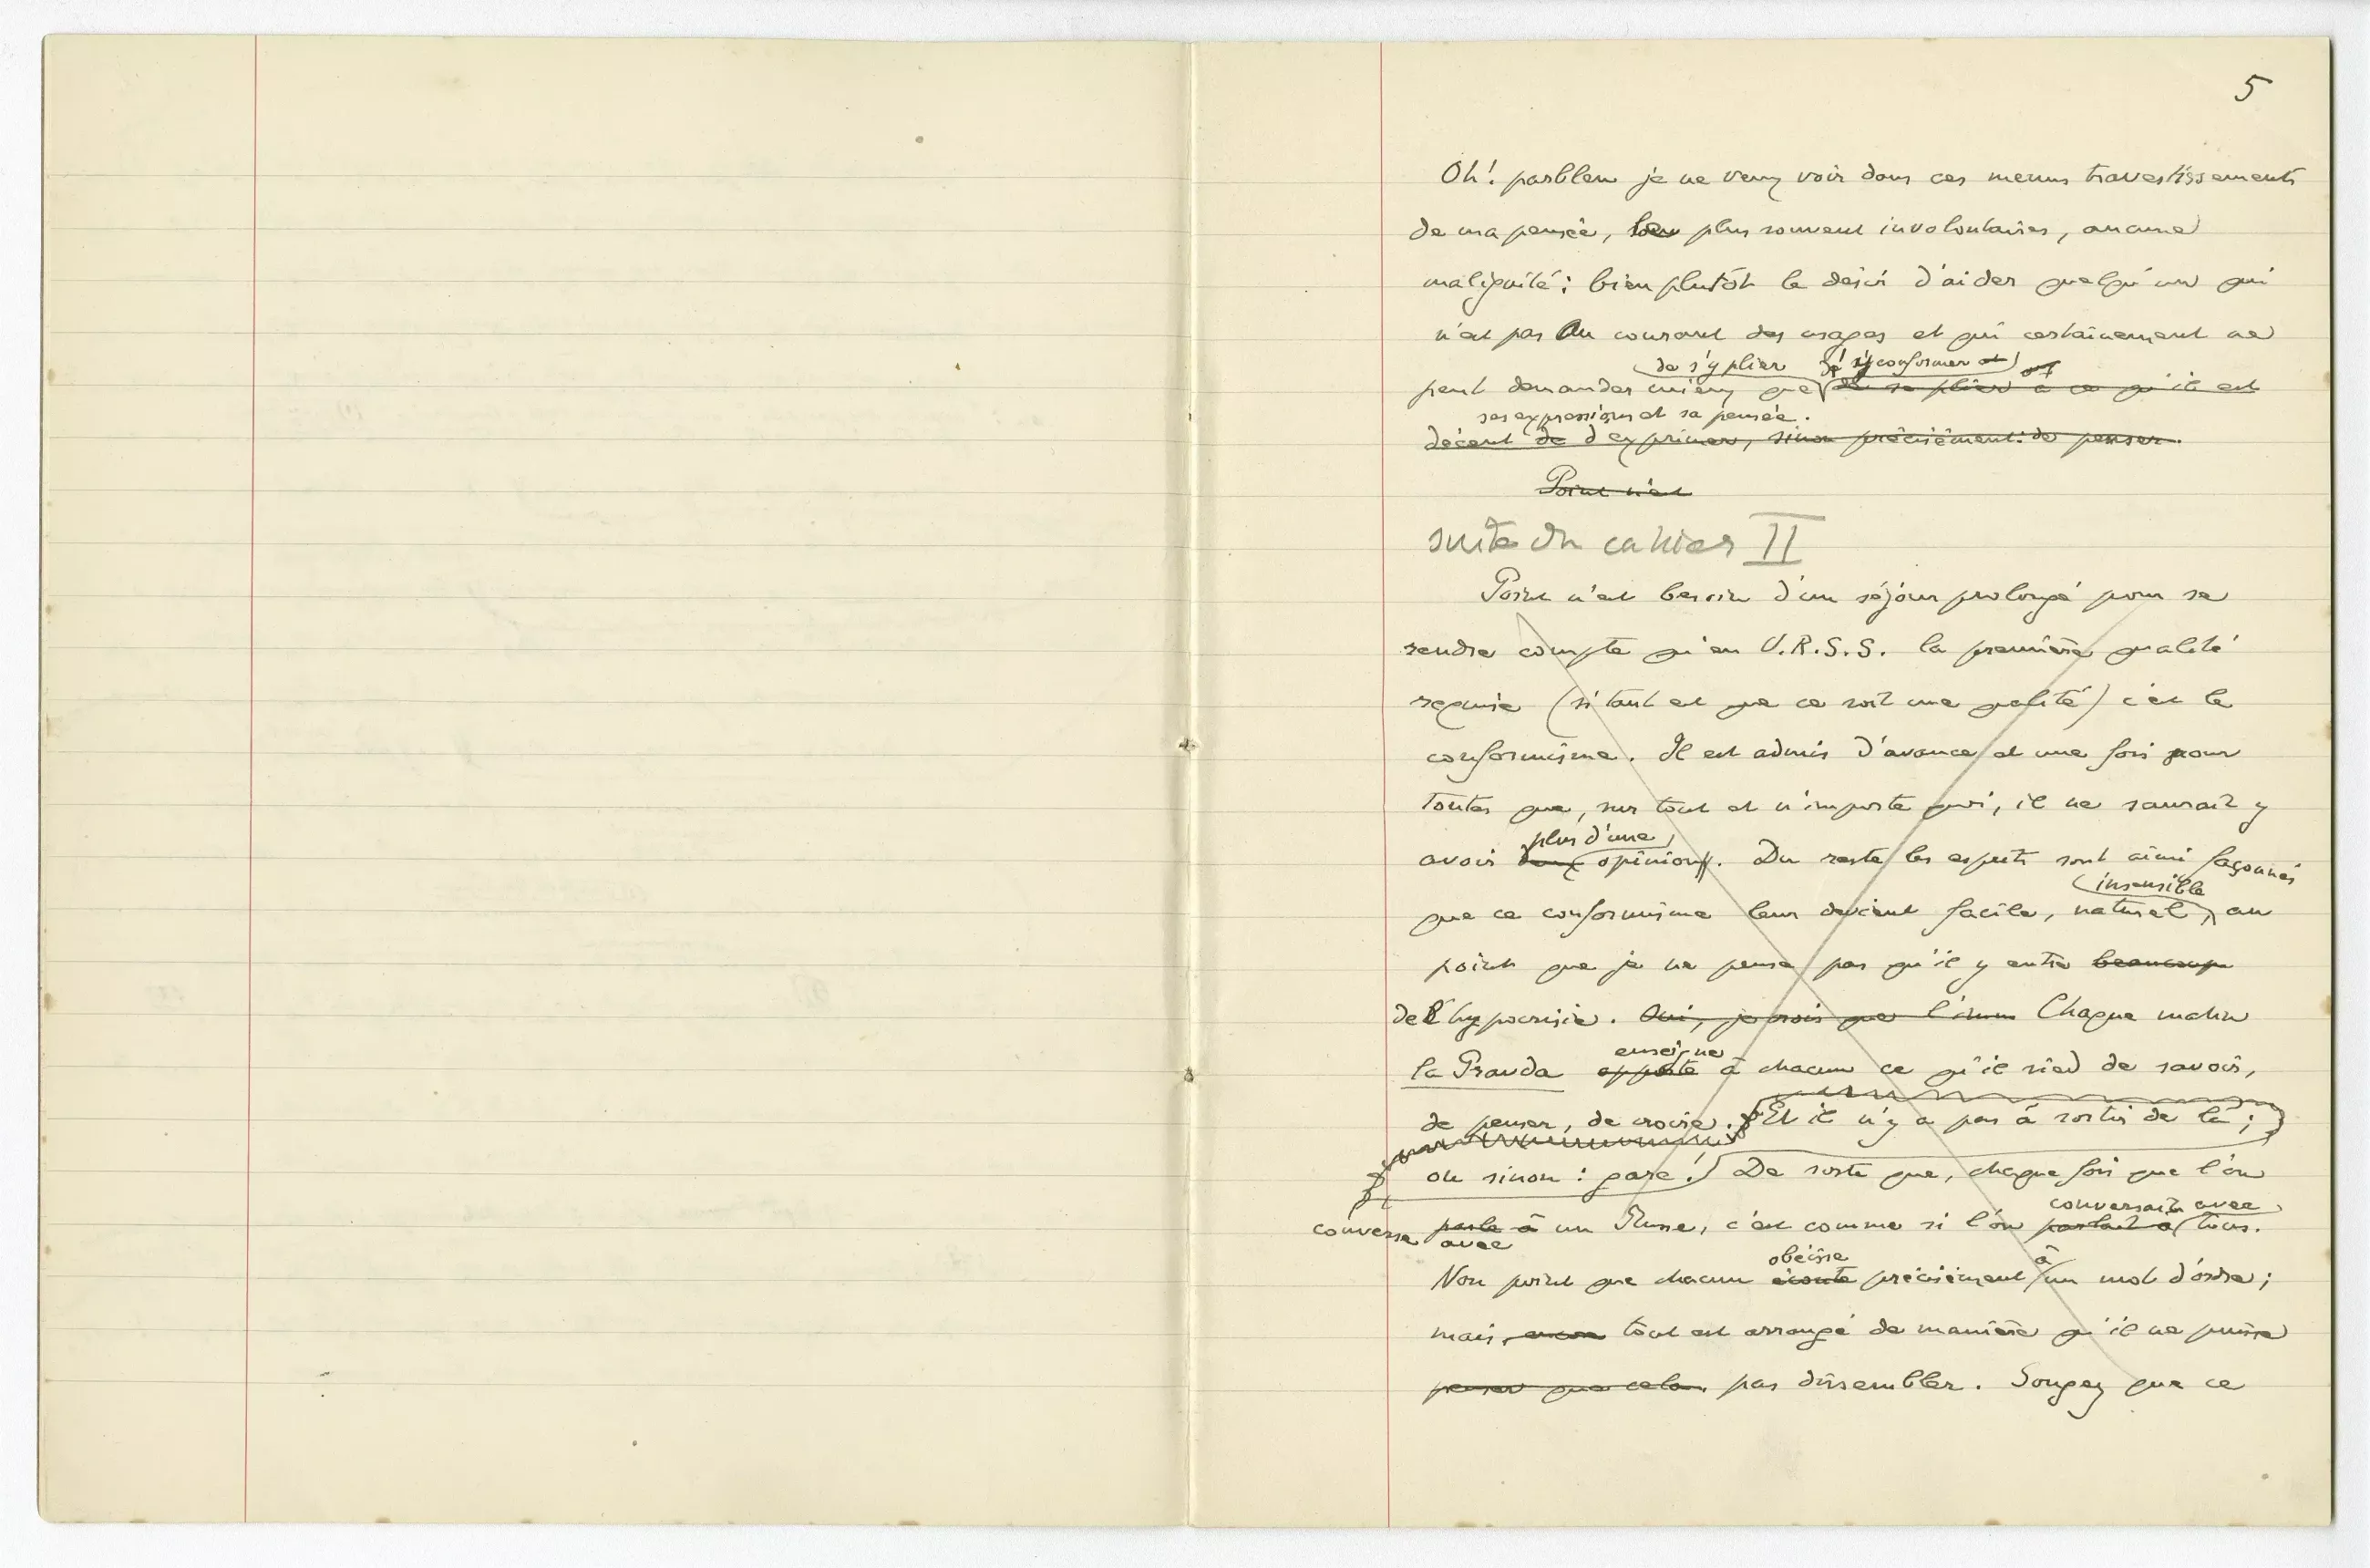 5
Oh! parbleu je ne veux voir dans ces menus travestissements
de ma pensée, le plus souvent involontaires, aucune
malignité; bien plutôt le désir d'aider quelqu'un qui
n'est pas au courant des usages et qui certainement ne
de s'y plier d'y conformer et
peut demander mieux que de se plier à ce qu'il est
ses expressions et sa pensée.
décent de d'exprimer, sinon précisément: de penser.
Point n'est
suite du cahier II
Point n'est besoin d'un séjour prolongé pour se
rendre compte qu'en U.R.S.S. la première qualité
requise (si tant est que ce soit une qualité) c'est le
conformisme. Il est admis d'avance et une fois pour
toutes que, sur tout et n'importe quoi, il ne saurait y
plus d'une
avoir deux opinions. Du reste les esprits sont ainsi façonnés
insensible
que ce conformisme leur devient facile, naturel, au
point que je ne pense pas qu'il y entre beaucoup
de l'hypocrisie. Oui, je crois que l'imm Chaque matin
enseigne
la Pravda apporte à chacun ce qu'il sied de savoir,
de penser, de croire. Et il n'y a pas à sortir de là;
ou sinon: gare! De sorte que, chaque fois que l'on
conversait avec
converse parle à un Russe, c'est comme si l'on parlait à tous.
avec
obéisse à
Non point que chacun écoute précisément un mot d'ordre;
mais, tout est arrangé de manière qu'il ne puisse
penser que cela. pas dissembler. Songez que ce